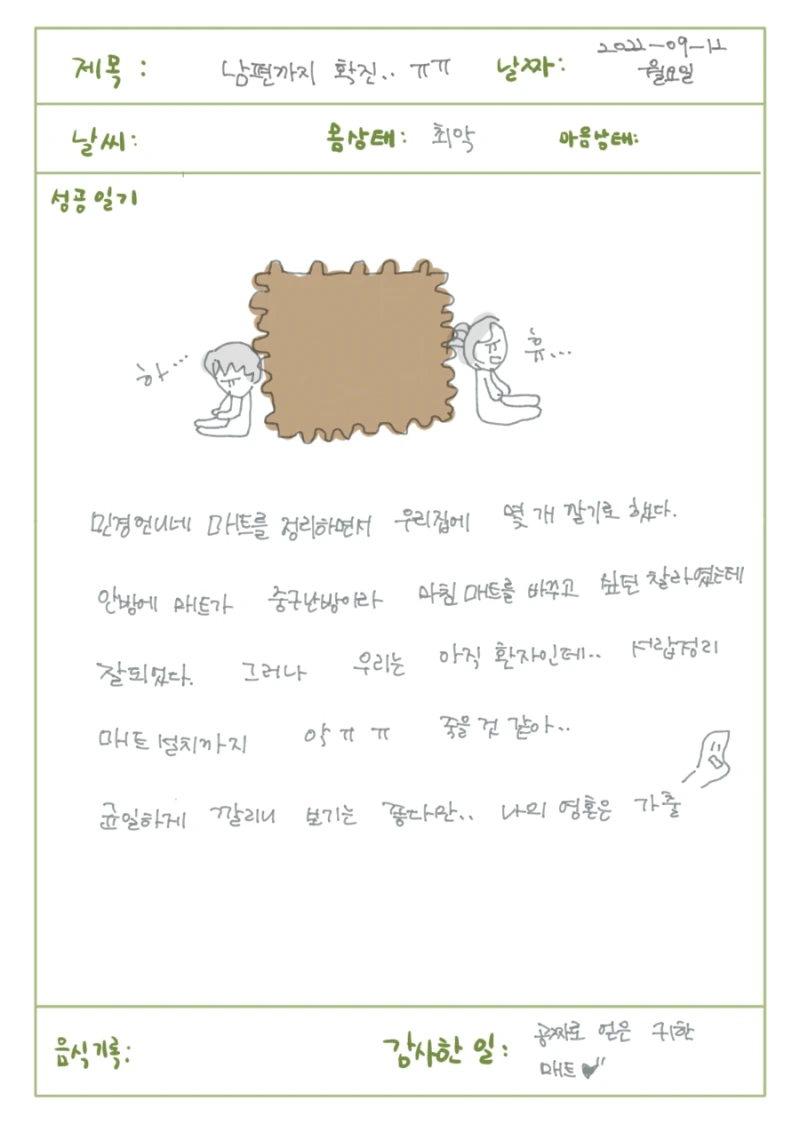 제목 : 남편까지 확진.. ㅠㅠ 날짜: 2022-09-12 월요일
날씨: 몸상태: 최악 마음상태:
성공 일기
하...
휴...
민경언니네 매트를 정리하면서 우리집에 몇 개 깔기로 했다.
안방에 매트가 중구난방이라 마침 매트를 바꾸고 싶던 찰라였는데
잘되었다. 그러나 우리는 아직 환자인데.. 서랍정리
매트 설치까지 악 ㅠ ㅠ 죽을 것 같아..
균일하게 깔리니 보기는 좋다만.. 나의 영혼은 가출
음식기록: 감사한 일: 공짜로 얻은 귀한
매트♥